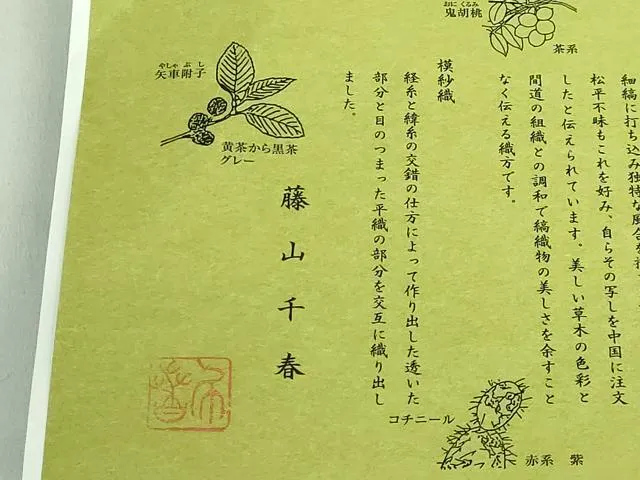 おに くるみ
鬼胡桃
茶系
細縞に打ち込み独特な風合を
松平不昧もこれを好み、自らその写しを中国に注文
したと伝えられています。美しい草木の色彩と
間道の組織との調和で縞織物の美しさを余すこと
なく伝える織方です。
模紗織
経糸と緯糸の交錯の仕方によって作り出した透いた
部分と目のつまった平織の部分を交互に織り出し
ました。
やしゃ ぶ し
矢車附子
黄茶から黒茶
グレー
藤山千春
コチニール
赤系 紫